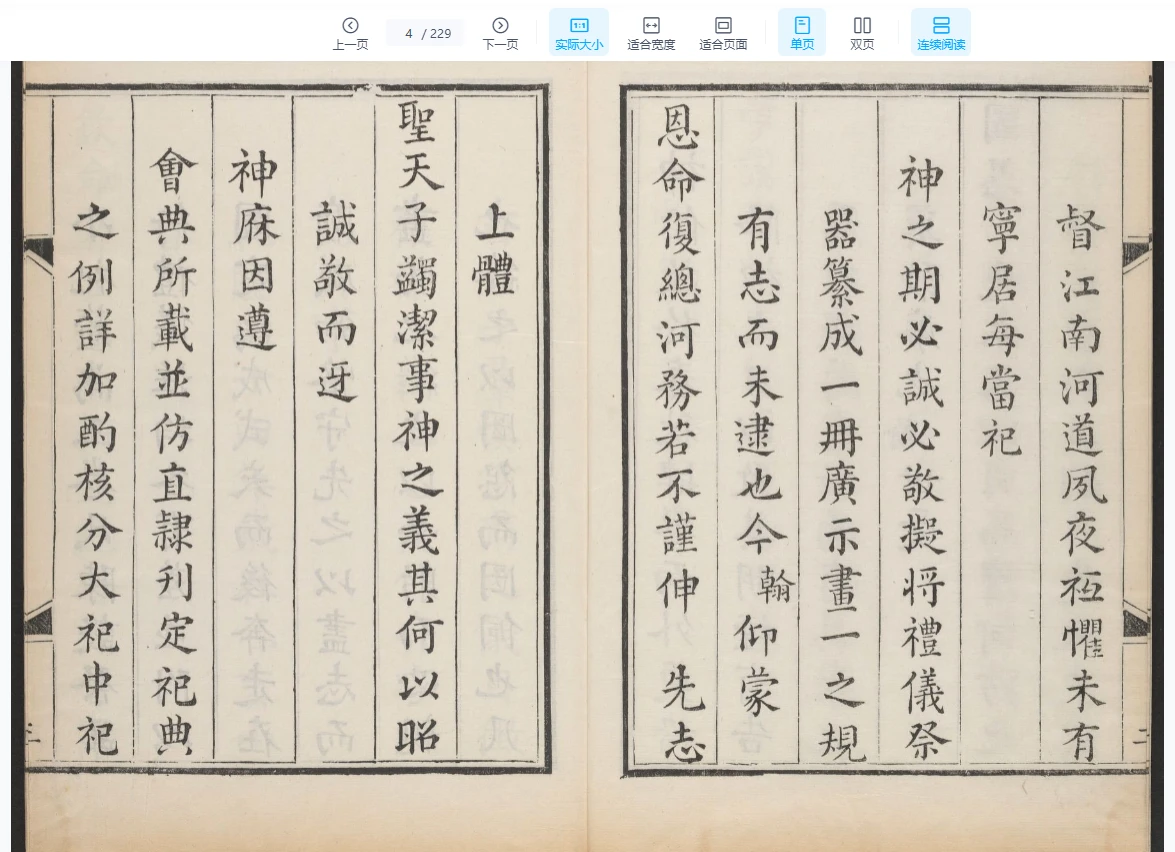 上一页
4 / 229
下一页
1:1
实际大小
适合宽度
适合页面
单页
双页
连续阅读
督江南河道夙夜祗懼未有
寧居每當祀
神之期必誠必敬擬將禮儀祭
器纂成一冊廣示畫一之規
有志而未逮也今翰仰蒙
恩命復總河務若不謹伸先志
二
上體
聖天子蠲潔事神之義其何以昭
誠敬而迓
神庥因遵
會典所載並仿直隸刊定祀典
之例詳加酌核分大祀中祀
三